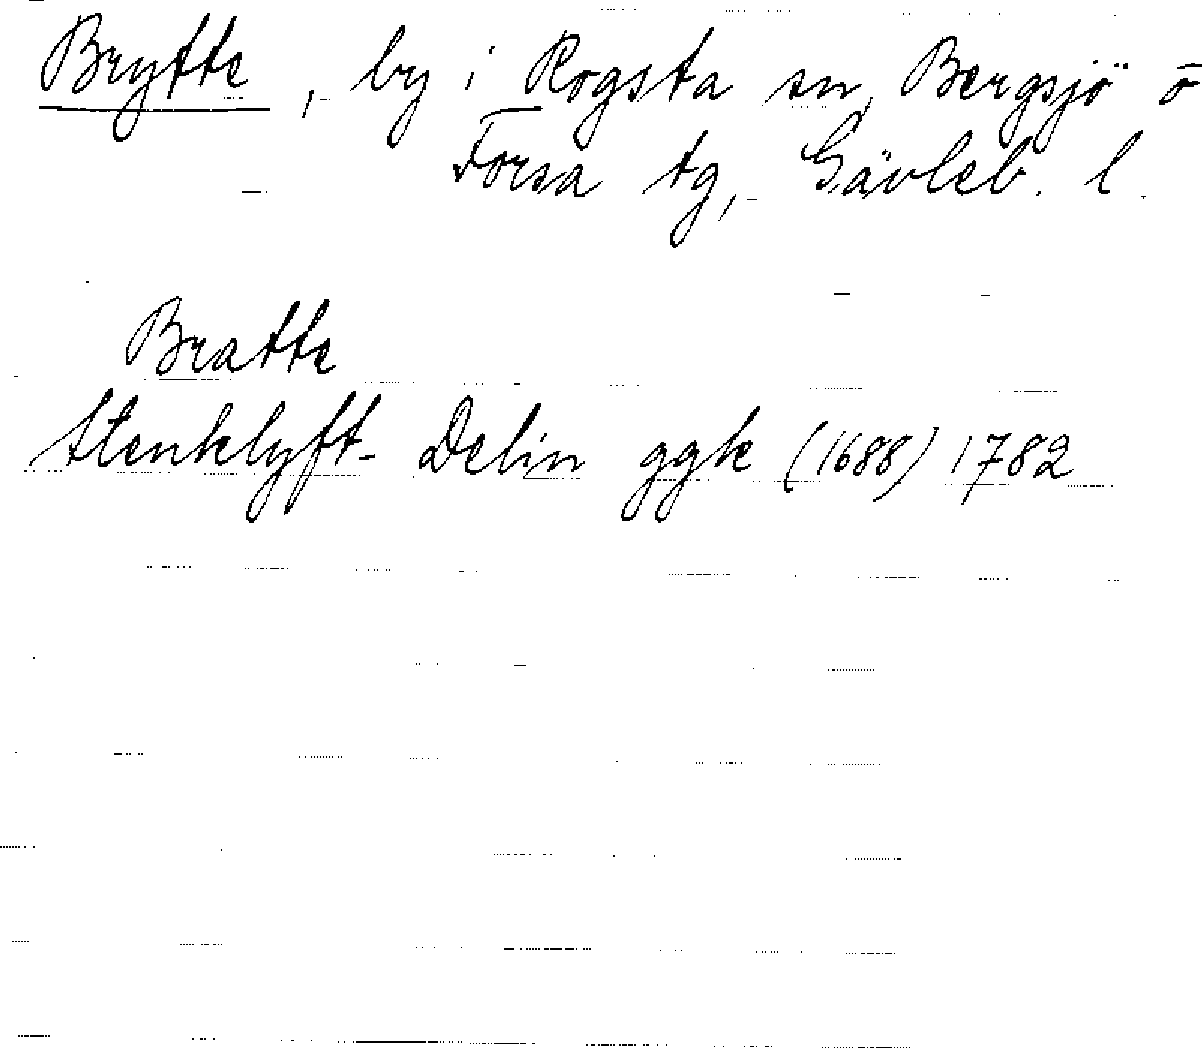 Brytte, by i Rogsta sn, Bergsjö o
Forsa tg, Gävleb. l.
Bratte
Stenklyft- Delin ggk (1688) 1782